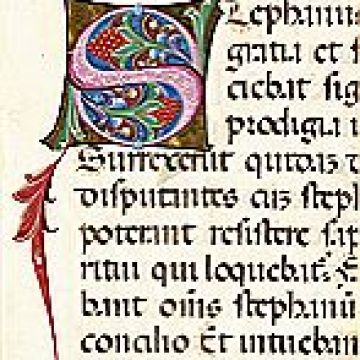 Stephanus
gratia et f
ciebat sig
prodigia i
Surrexerut quidaz d
disputantes cuz steph
poterant resistere sap
ritui qui loquebat. E
bant oms stephanu
concilio Et intueban